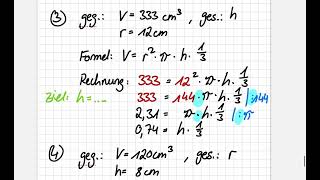 ③ geg.: V = 333 cm³, ges.: h
r = 12cm
Formel: V = r² · π · h · 1/3
Rechnung: 333 = 12² · π · h · 1/3
Ziel: h=.... 333 = 144 · π · h · 1/3 | :144
2,31 = π · h · 1/3 | : π
0,74 = h · 1/3
④ geg.: V = 120cm³, ges.: r
h = 8cm